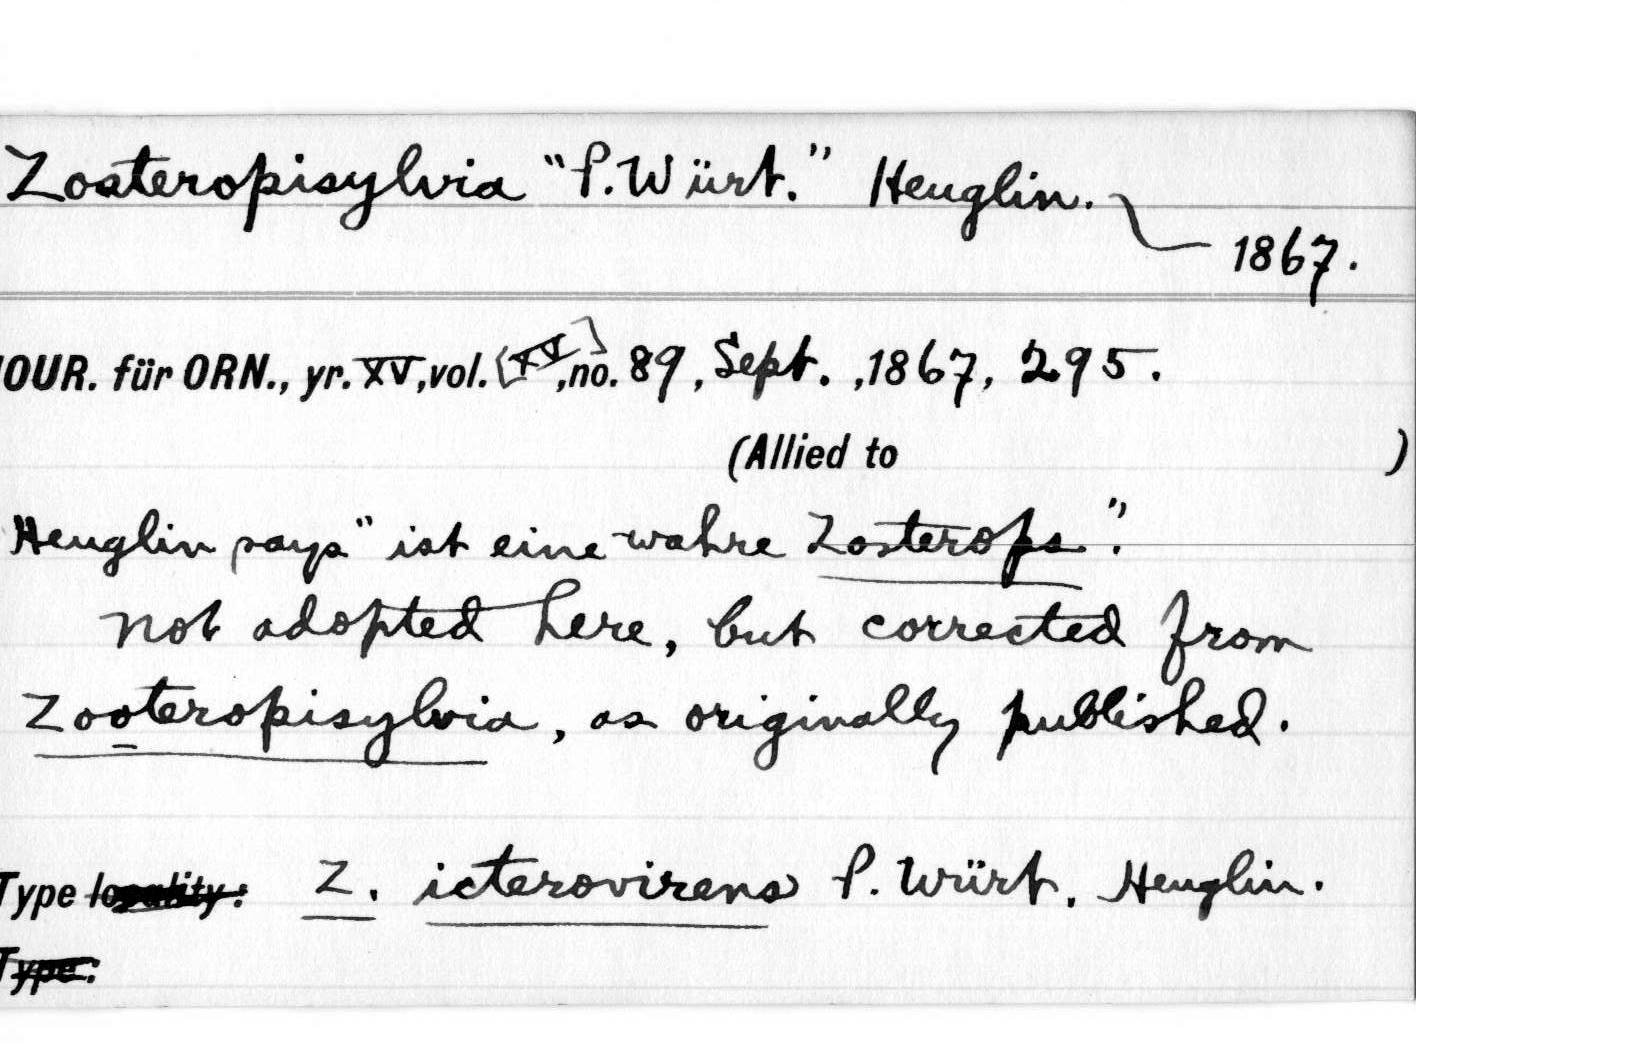 Zosteropisylvia "P. Würt." Heuglin.
1867.
JOUR. für ORN., yr. XV, vol. [XV], no. 89, Sept., 1867, 295.
(Allied to )
Heuglin says "ist eine wahre Zosterops".
Not adopted here, but corrected from
Zooteropisylvia, as originally published.
Type locality: Z. icterovirens P. Würt. Heuglin.
Type: